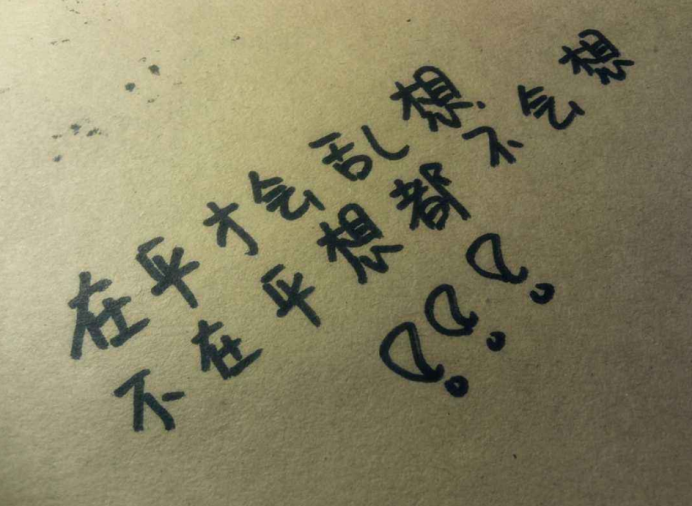 在乎才会乱想.
不在乎想都不会想
!!!